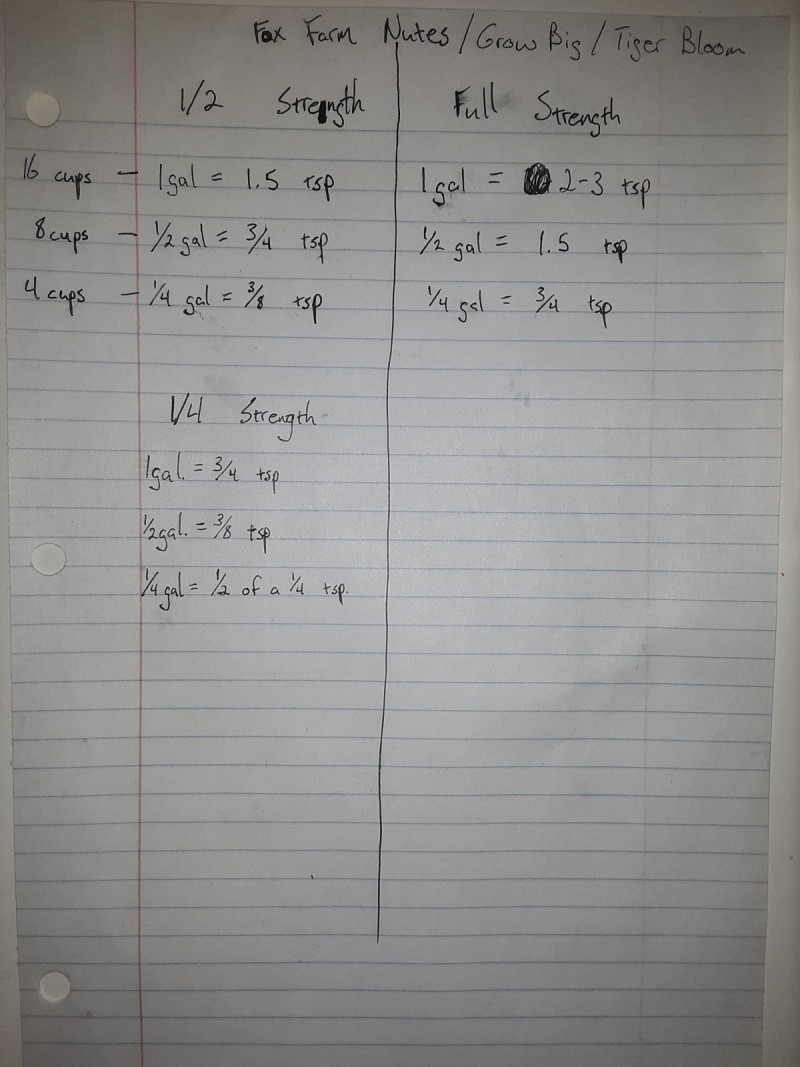 Fox Farm Nutes / Grow Big / Tiger Bloom
1/2 Strength
16 cups – 1gal = 1.5 tsp
8 cups – 1/2 gal = 3/4 tsp
4 cups – 1/4 gal = 3/8 tsp
1/4 Strength
1gal. = 3/4 tsp
1/2gal. = 3/8 tsp
1/4 gal = 1/2 of a 1/4 tsp.
Full Strength
1gal = 2-3 tsp
1/2 gal = 1.5 tsp
1/4 gal = 3/4 tsp